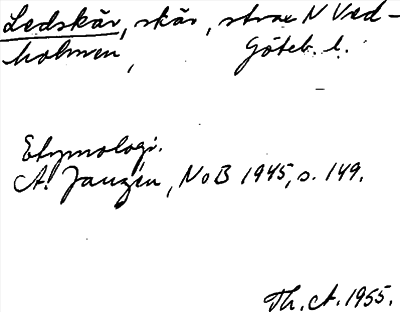 Ledskär, skär, strax N Ved-
holmen, Göteb. l.
Etymologi.
A. Janzén, NoB 1945, s. 149.
Th. A. 1955.